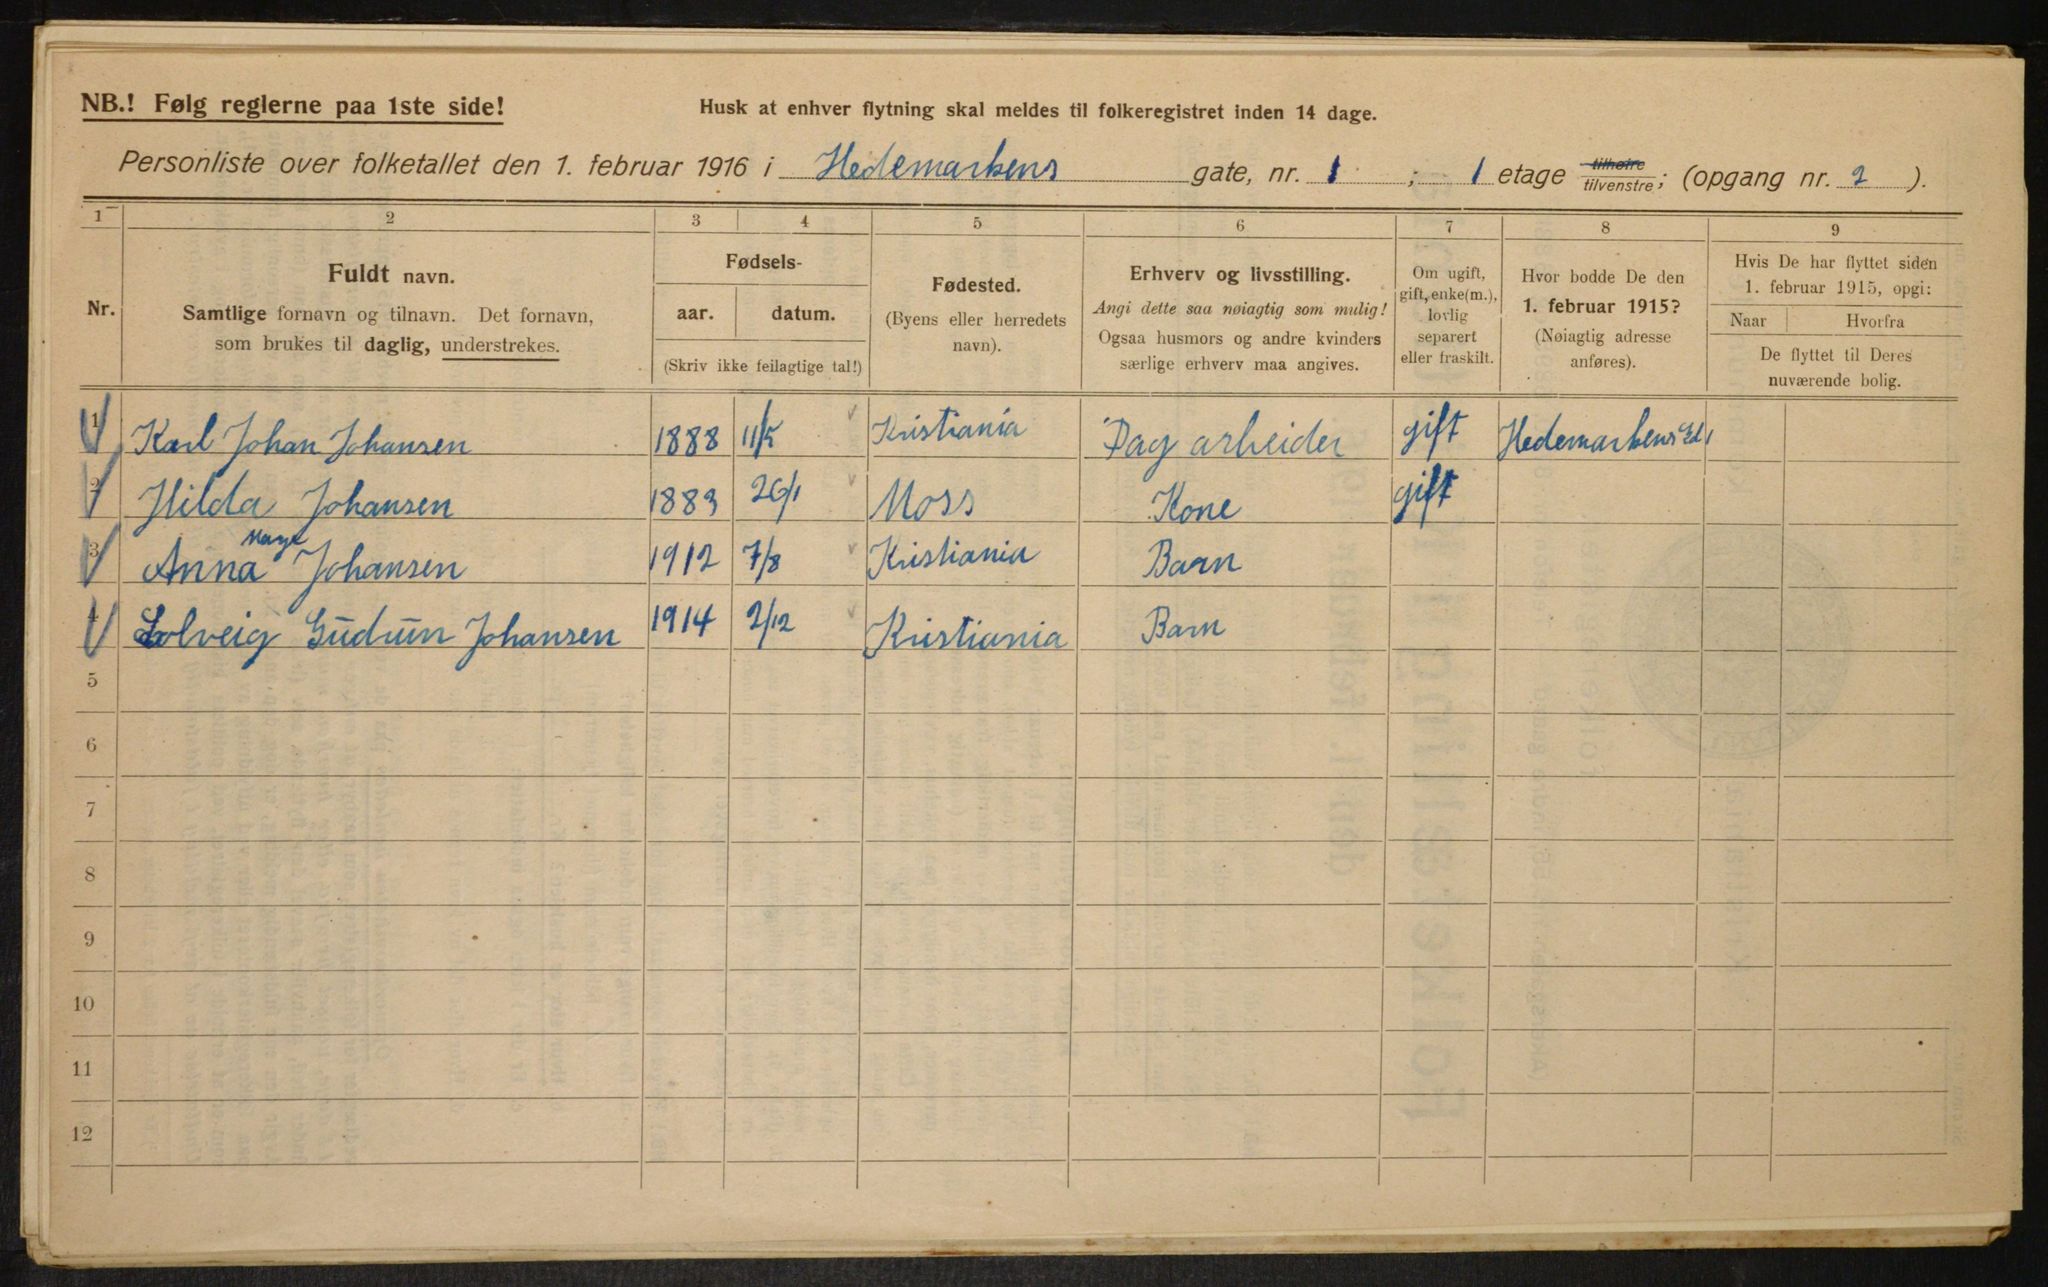 NB.! Følg reglerne paa 1ste side!
Husk at enhver flytning skal meldes til folkeregistret inden 14 dage.
Personliste over folketallet den 1. februar 1916 i Hedemarkens gate, nr. 1 ; 1 etage tilhøire tilvenstre; (opgang nr. 2 ).
1 2 3 4 5 6 7 8 9
Nr.
Fuldt navn.
Samtlige fornavn og tilnavn. Det fornavn,
som brukes til daglig, understrekes.
Fødsels-
aar. datum.
(Skriv ikke feilagtige tal!)
Fødested.
(Byens eller herredets
navn).
Erhverv og livsstilling.
Angi dette saa nøiagtig som mulig!
Ogsaa husmors og andre kvinders
særlige erhverv maa angives.
Om ugift,
gift, enke(m.),
lovlig
separert
eller fraskilt.
Hvor bodde De den
1. februar 1915?
(Nøiagtig adresse
anføres).
Hvis De har flyttet siden
1. februar 1915, opgi:
Naar Hvorfra
De flyttet til Deres
nuværende bolig.
1 Karl Johan Johansen 1888 11/5 Kristiania Dag arbeider gift Hedemarkens
2 Hilda Johansen 1883 26/1 Moss Kone gift
3 Anna Johansen 1912 7/8 Kristiania Barn
4 Solveig Gudrun Johansen 1914 2/12 Kristiania Barn
5
6
7
8
9
10
11
12